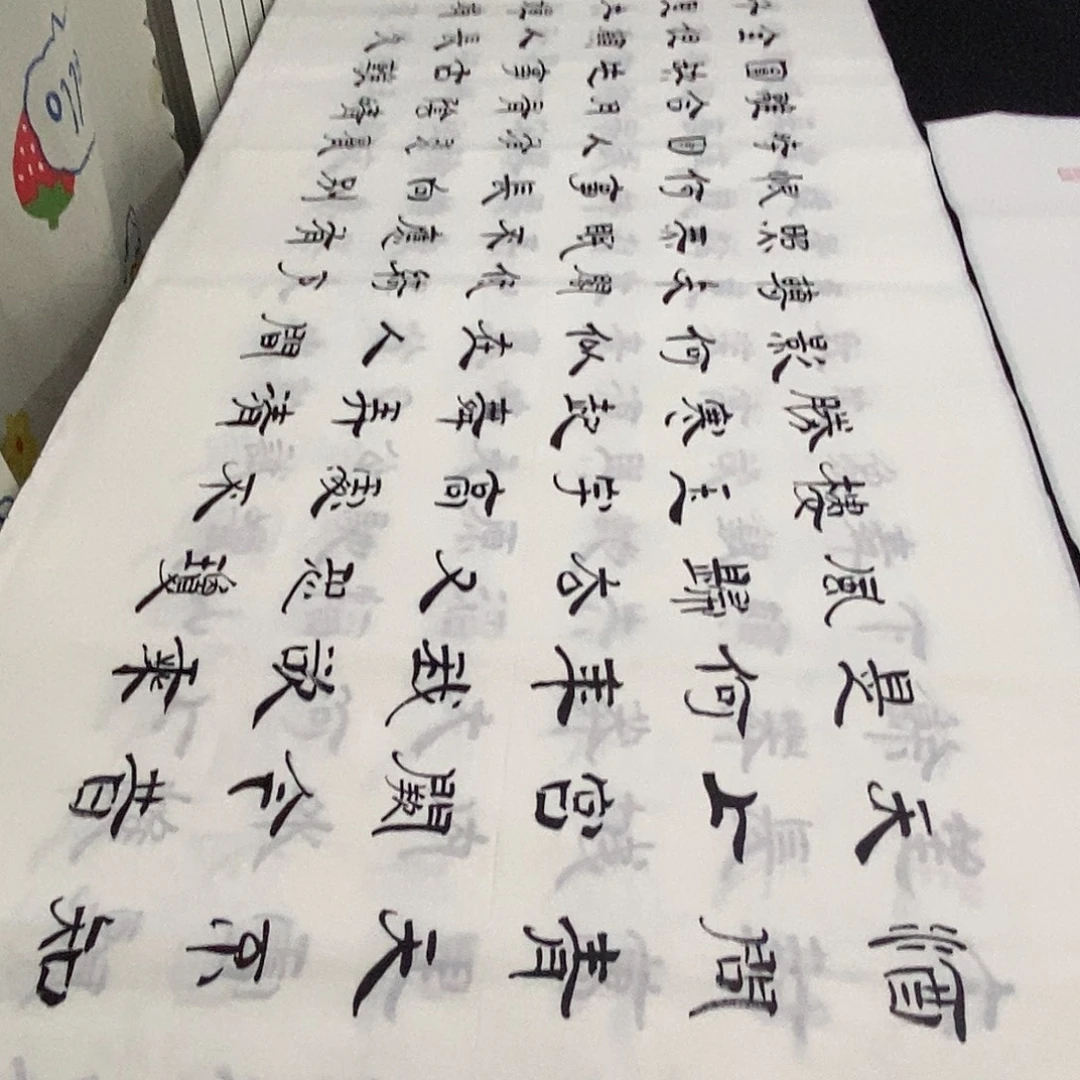 酒問青天不知
天上宮闕今昔
是何年我欲乘
風歸去又恐瓊
樓玉宇高處不
勝寒起舞弄清
影何似在人間
轉朱閣低綺戶
照無眠不應有
恨何事長向別
時圓人有悲
離合月有陰晴
圓缺此事古難
全但願人長久